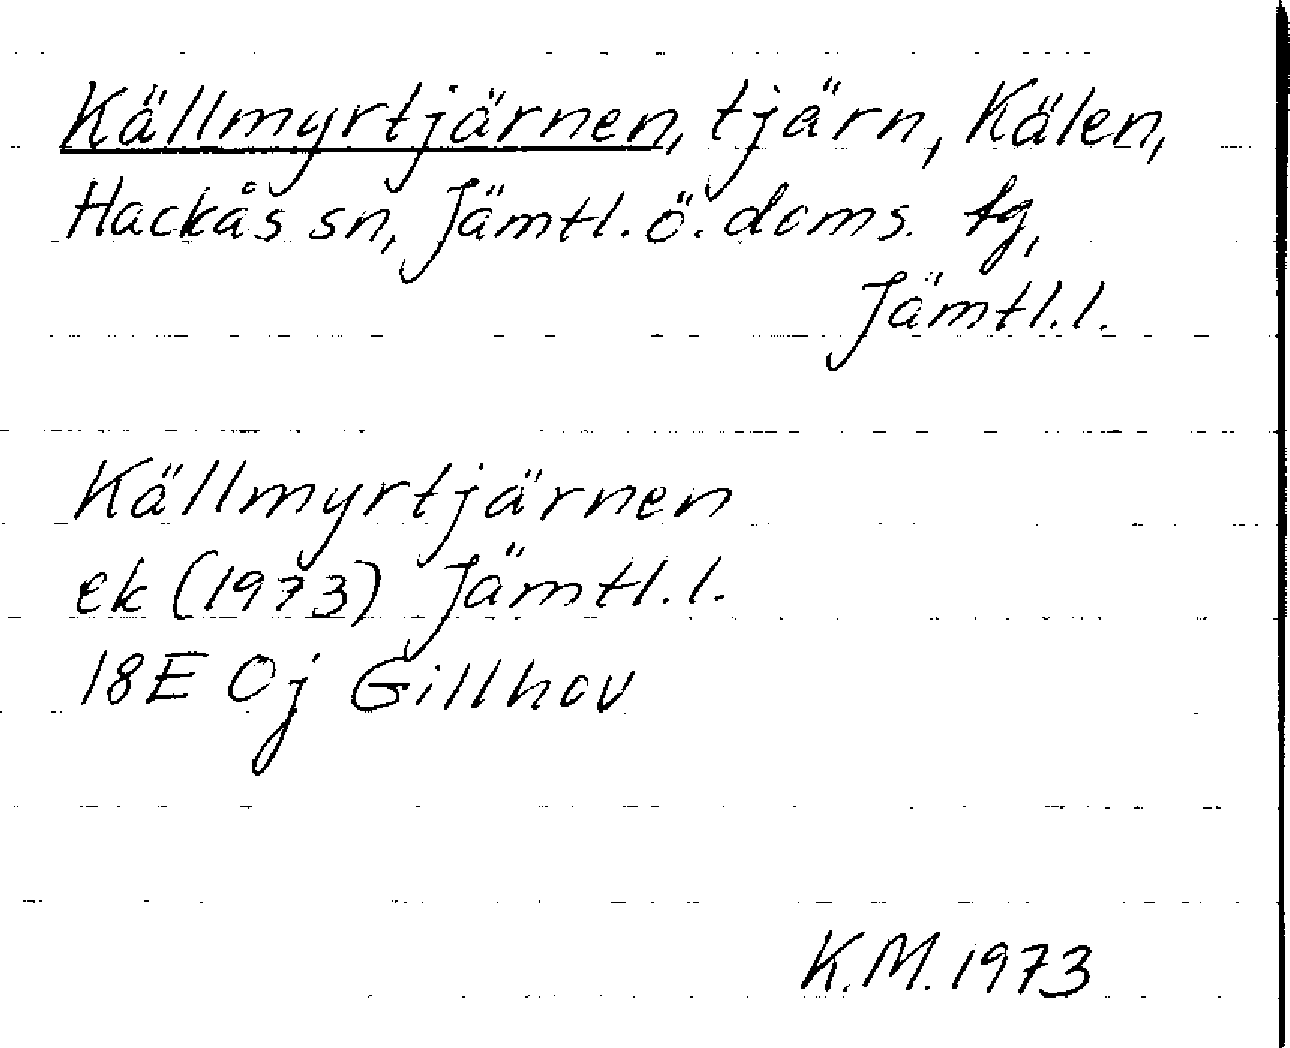 Källmyrtjärnen, tjärn, Kälen,
Hackås sn, Jämtl. ö. doms. tg,
Jämtl. l.
Källmyrtjärnen
ek (1973) Jämtl. l.
18E 0j Gillhov
K.M. 1973